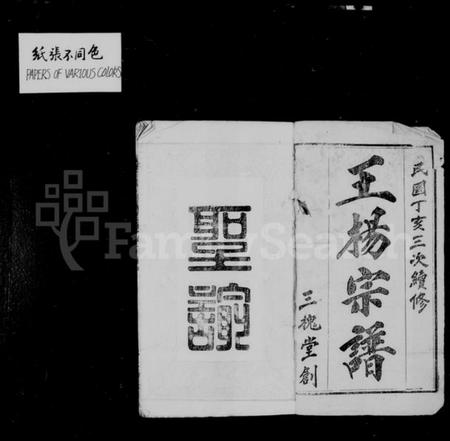 紙張不同色
PAPERS OF VARIOUS COLORS
民国丁亥三次續修
王楊宗譜
三槐堂創
聖諭
FamilySearch